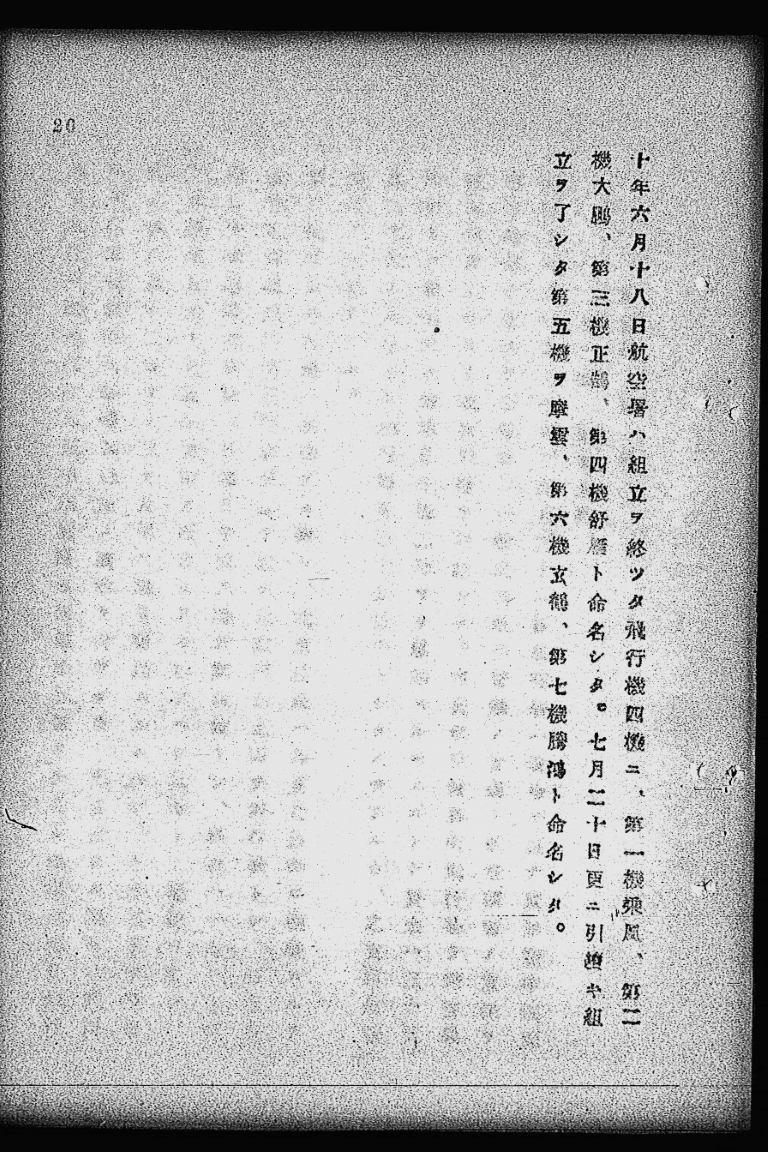 20
十年六月十八日航空署ハ組立ヲ終ツタ飛行機四機ニ、第一機乗風、第二
機大鵬、第三機正鵠、第四機舒雁ト命名シタ。七月二十日更ニ引続キ組
立ヲ了シタ第五機ヲ摩雲、第六機玄鶴、第七機騰鴻ト命名シタ。